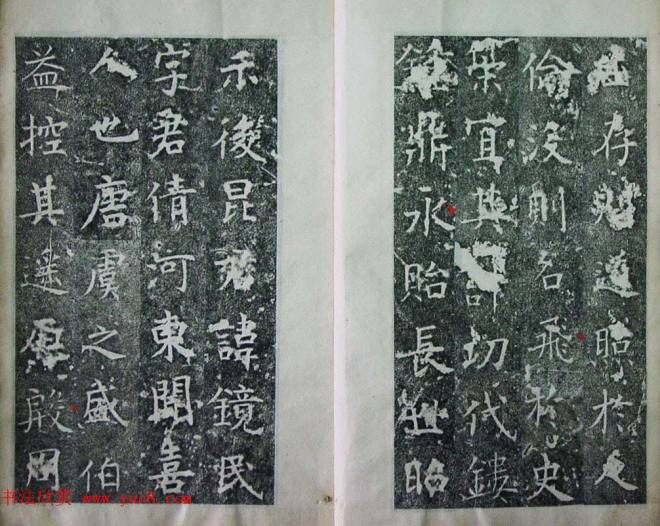 存則道昭於人
倫没則名飛於史
宜其功代鏤
鼎永貽長世昭
示後昆諱鏡民
字君倩河東聞喜
人也唐虞之盛伯
益控其原殷周
书法欣赏 www.yac8.com